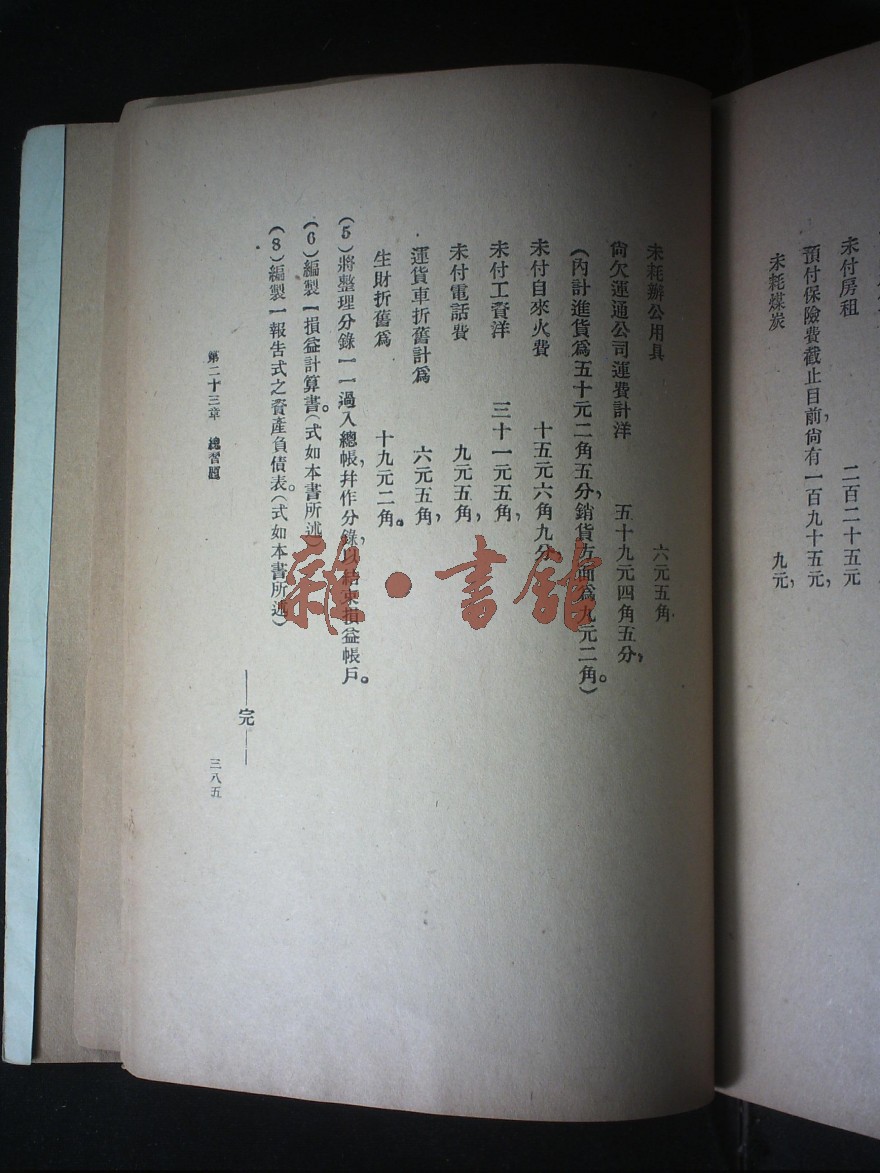 未付房租 二百二十五元
預付保險費截止目前,尙有一百九十五元,
未耗煤炭 九元,
未耗辦公用具 六元五角
尙欠運通公司運費計洋 五十九元四角五分,
(內計進貨爲五十元二角五分,銷貨方面爲九元二角。)
未付自來火費 十五元六角九分
未付工資洋 三十一元五角,
未付電話費 九元五角,
運貨車折舊計爲 六元五角,
生財折舊爲 十九元二角。
(5)將整理分錄一一過入總帳,幷作分錄,以結束損益帳戶。
(6)編製一損益計算書。(式如本書所述)
(8)編製一報告式之資產負債表。(式如本書所述)
——完——
第二十三章 總習題
三八五
雜·書館